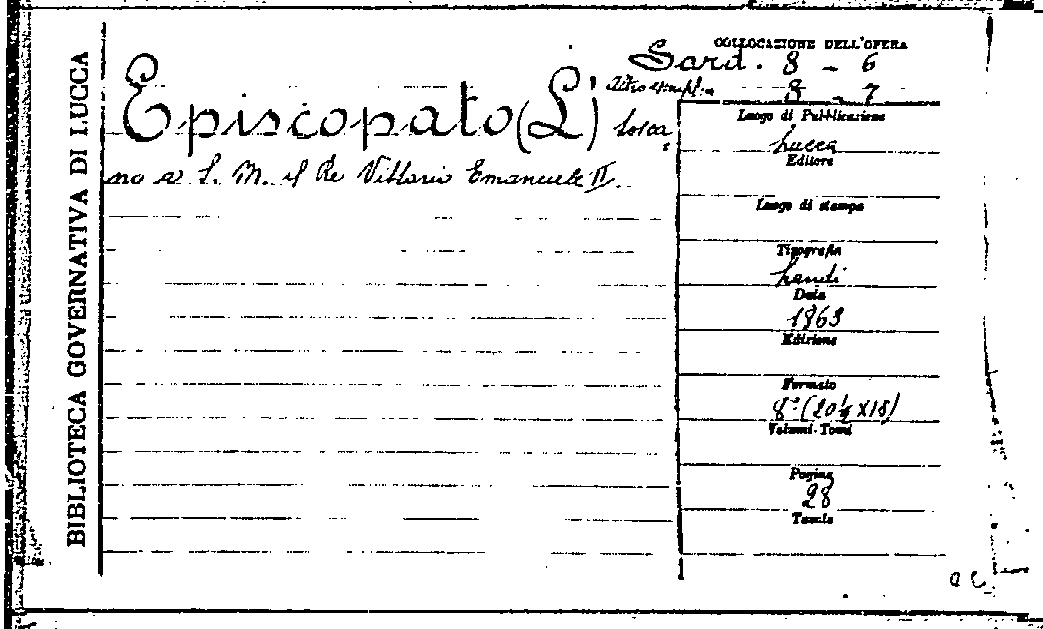 BIBLIOTECA GOVERNATIVA DI LUCCA
COLLOCAZIONE DELL'OPERA
Sard. 8 - 6
8 - 7
Episcopato (L') tosca,
no a S. M. il Re Vittorio Emanuele II.
Luogo di Pubblicazione
Lucca
Editore
Luogo di stampa
Tipografia
Landi
Data
1863
Edizione
Formato
8° (20½ X 18)
Volumi-Tomi
Pagine
28
Tavole